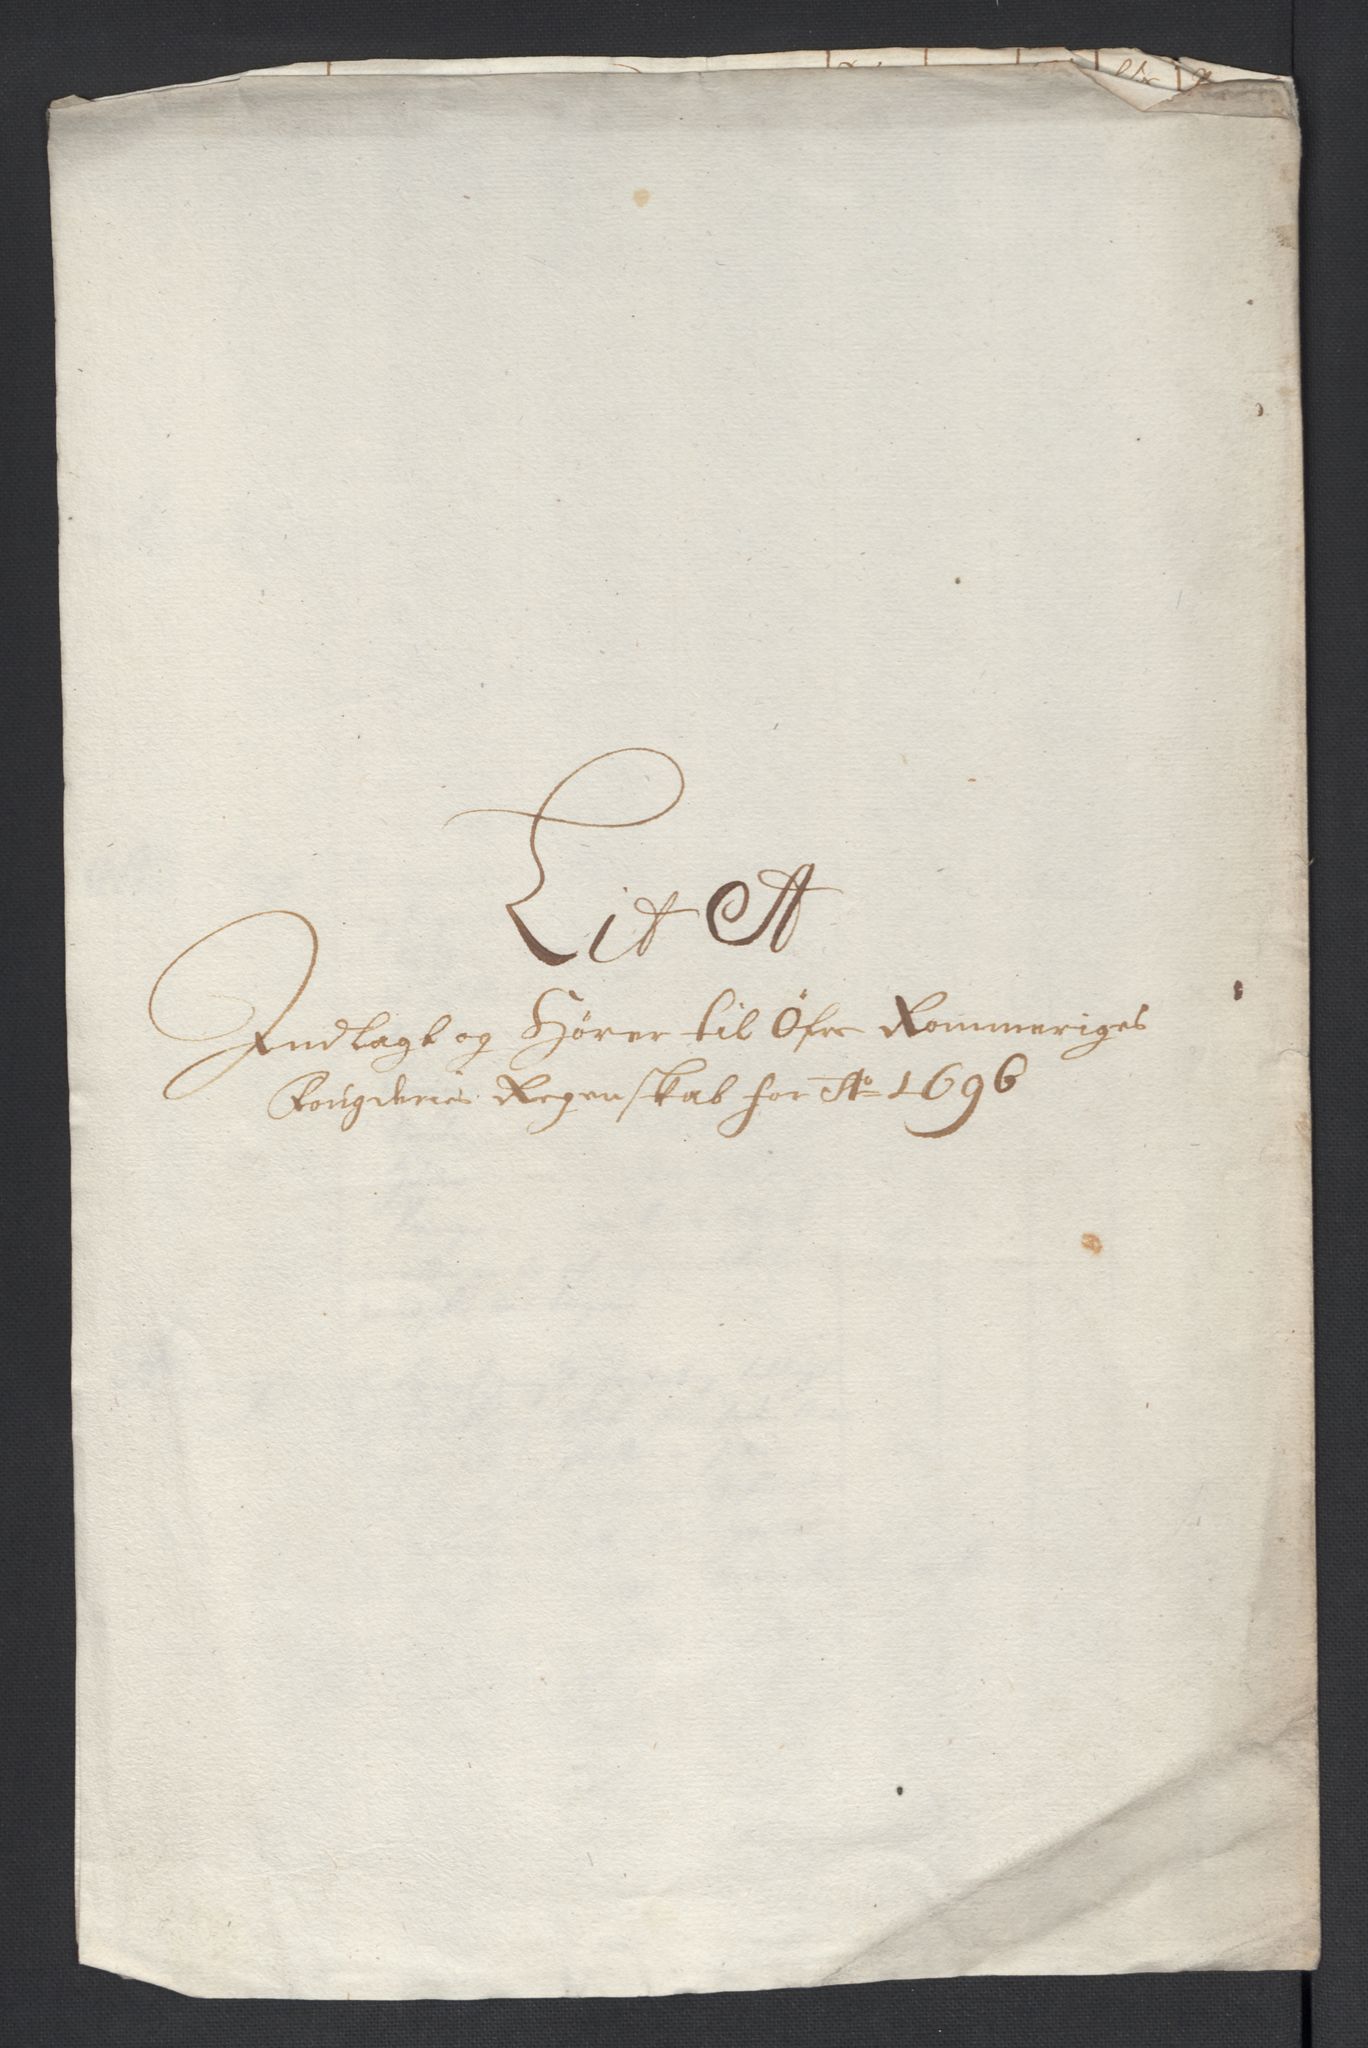 Lit A
Indlagt og Hörer til Öfre Rommeriges
Fougderies Regenskab for Ao 1696